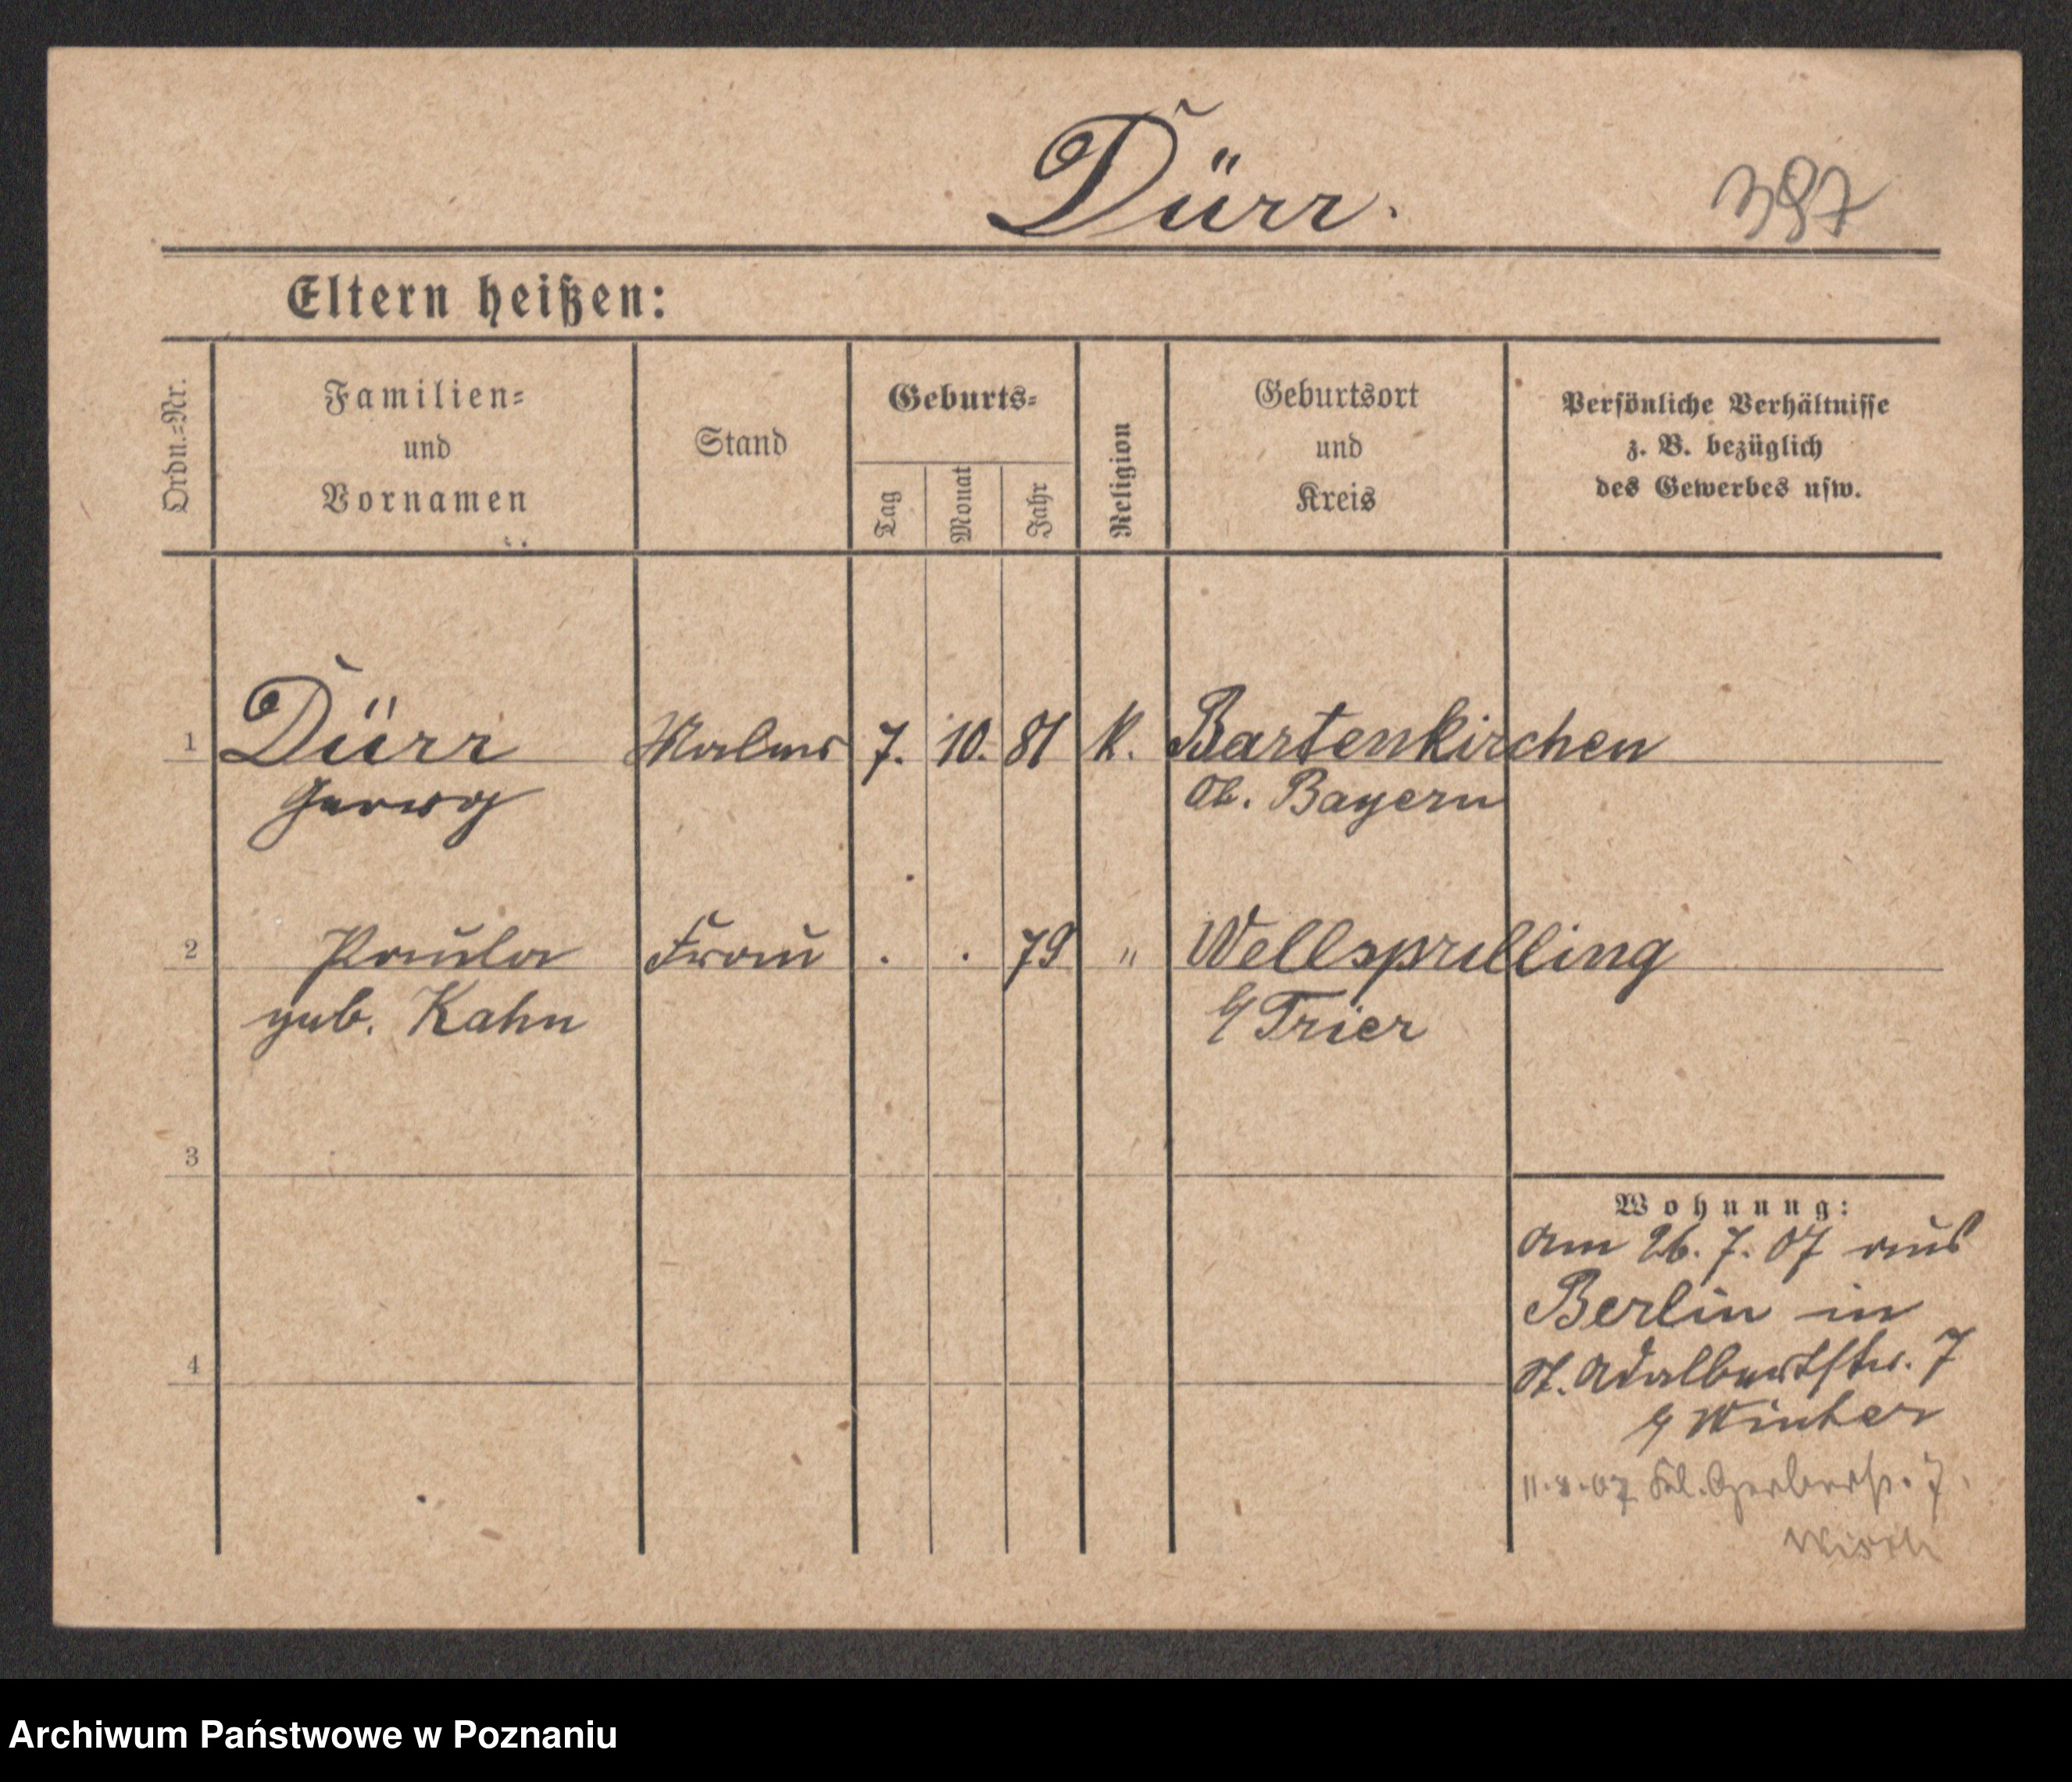 Dürr.
387
Eltern heißen:
Ordn.-Nr.
Familien-
und
Vornamen
Stand
Geburts-
Tag
Monat
Jahr
Religion
Geburtsort
und
Kreis
Persönliche Verhältnisse
z. B. bezüglich
des Gewerbes usw.
1 Dürr Maler 7. 10. 81 k. Bartenkirchen
Georg Ob. Bayern
2 Paula Frau . . 79 " Wellsprilling
geb. Kahn Trier
3
Wohnung:
am 26. 7. 07 aus
Berlin in
4
St. Adalbertstr. 7
Winter
11.8.07 Kl. Gerberstr. 7.
Archiwum Państwowe w Poznaniu